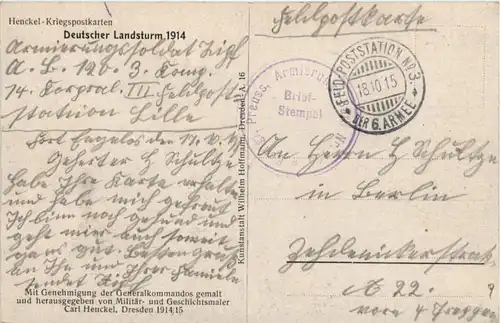 Henckel-Kriegspostkarten
Deutscher Landsturm 1914
Armierungssoldat Zipf
A. B. 120. 3. Komp.
14. Korporal. III Feldpost
station Lille
Fort Englos den 17. X. 15
Geehrter H Schultze
habe Ihre Karte erhalten
und habe mich gefreut
Ich bin noch gesund und
geht mir auch soweit
ganz gut. Besten Gruß
an Ihn und Ihrer Familie
sendet Zipf
Mit Genehmigung der Generalkommandos gemalt
und herausgegeben von Militär- und Geschichtsmaler
Carl Henckel, Dresden 1914/15
Kunstanstalt Wilhelm Hoffmann, Dresden-A. 16
Feldpostkarte
Preuss. Armierungs
Brief-
Stempel
FELD-POSTSTATION NO 3.
18.10.15
DER 6. ARMEE
An Herrn H Schultze
in Berlin
Zehdenickerstraße
No 22.
vorn 4 Treppen